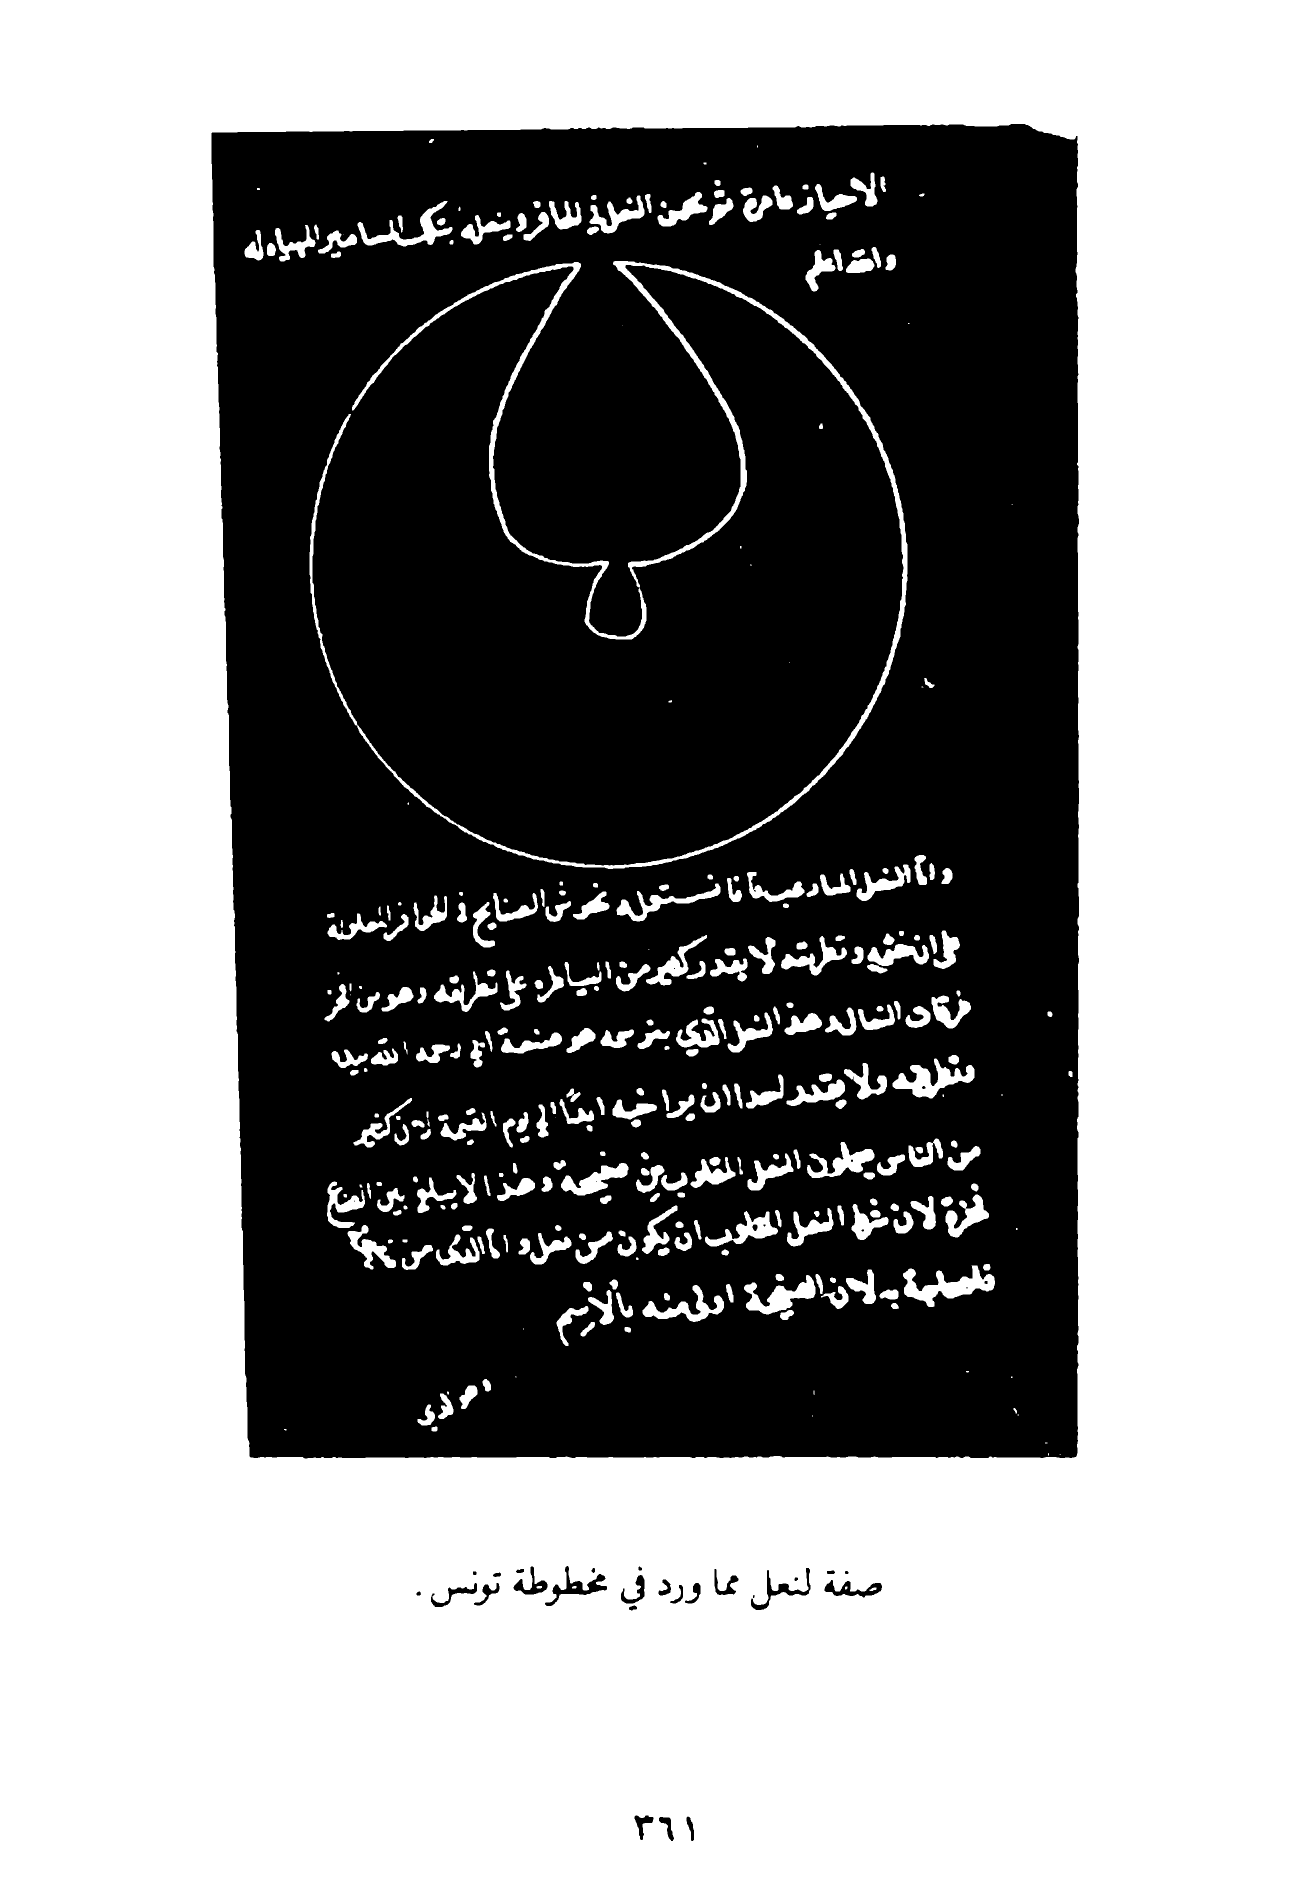 الاحياز عامرة ثم يمحن النعل في الحافر وينعله بتلك المسامير المهياه له
والله اعلم
واما النعل المسار عيه فانا نستعمله نحن الصنايع في الحوافر المعلولة
على ان خفيه وتطريقه لا يقدر كثير من البياطره على تطريقه وهو من
النعال وهذ النعل الذي بنرسمه هو صنعة ابي رحمه الله بيده
وتطريقه ولا يقدر احدا ان يراخيه ابدًا الى يوم القيمة لان كثير
من الناس يعملون النعل المقلوب من صفيحة وهذا لا يبلغ بين الصناع
لان شرط النعل المقلوب ان يكون من نعل واما الذي من
فلا به لان الصفيحة اولى منه بالارسم
وهو لذي
صفة لنعل مما ورد في مخطوطة تونس .
٣٦١